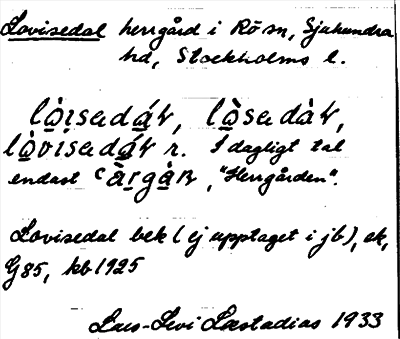 Lovisedal herrgård i Rö sn, Sjuhundra
hd, Stockholms l.
lòisadáɫ, lòsadàɫ,
lòvisadáɫ r. I dagligt tal
endast ʿàrgàɴ, "Herrgården".
Lovisedal bek (ej upptaget i jb), ek,
G85, kb 1925
Lars-Levi Læstadius 1933